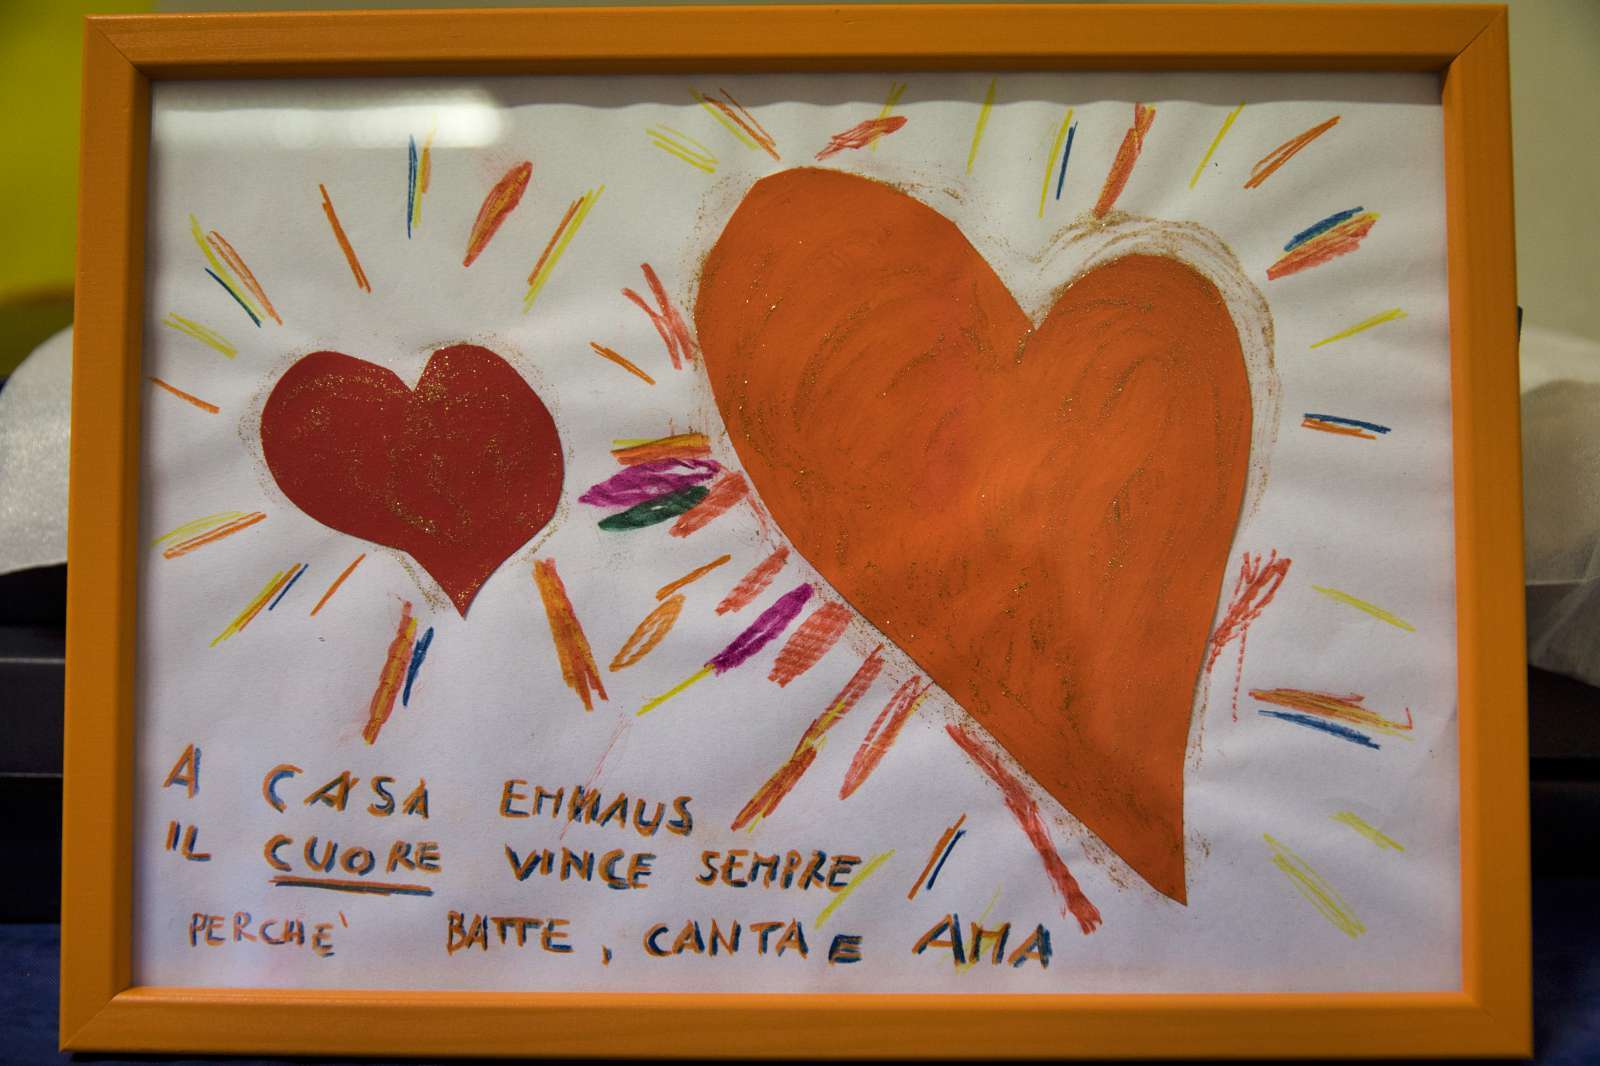 A CASA EMMAUS
IL CUORE VINCE SEMPRE
PERCHE' BATTE, CANTA E AMA